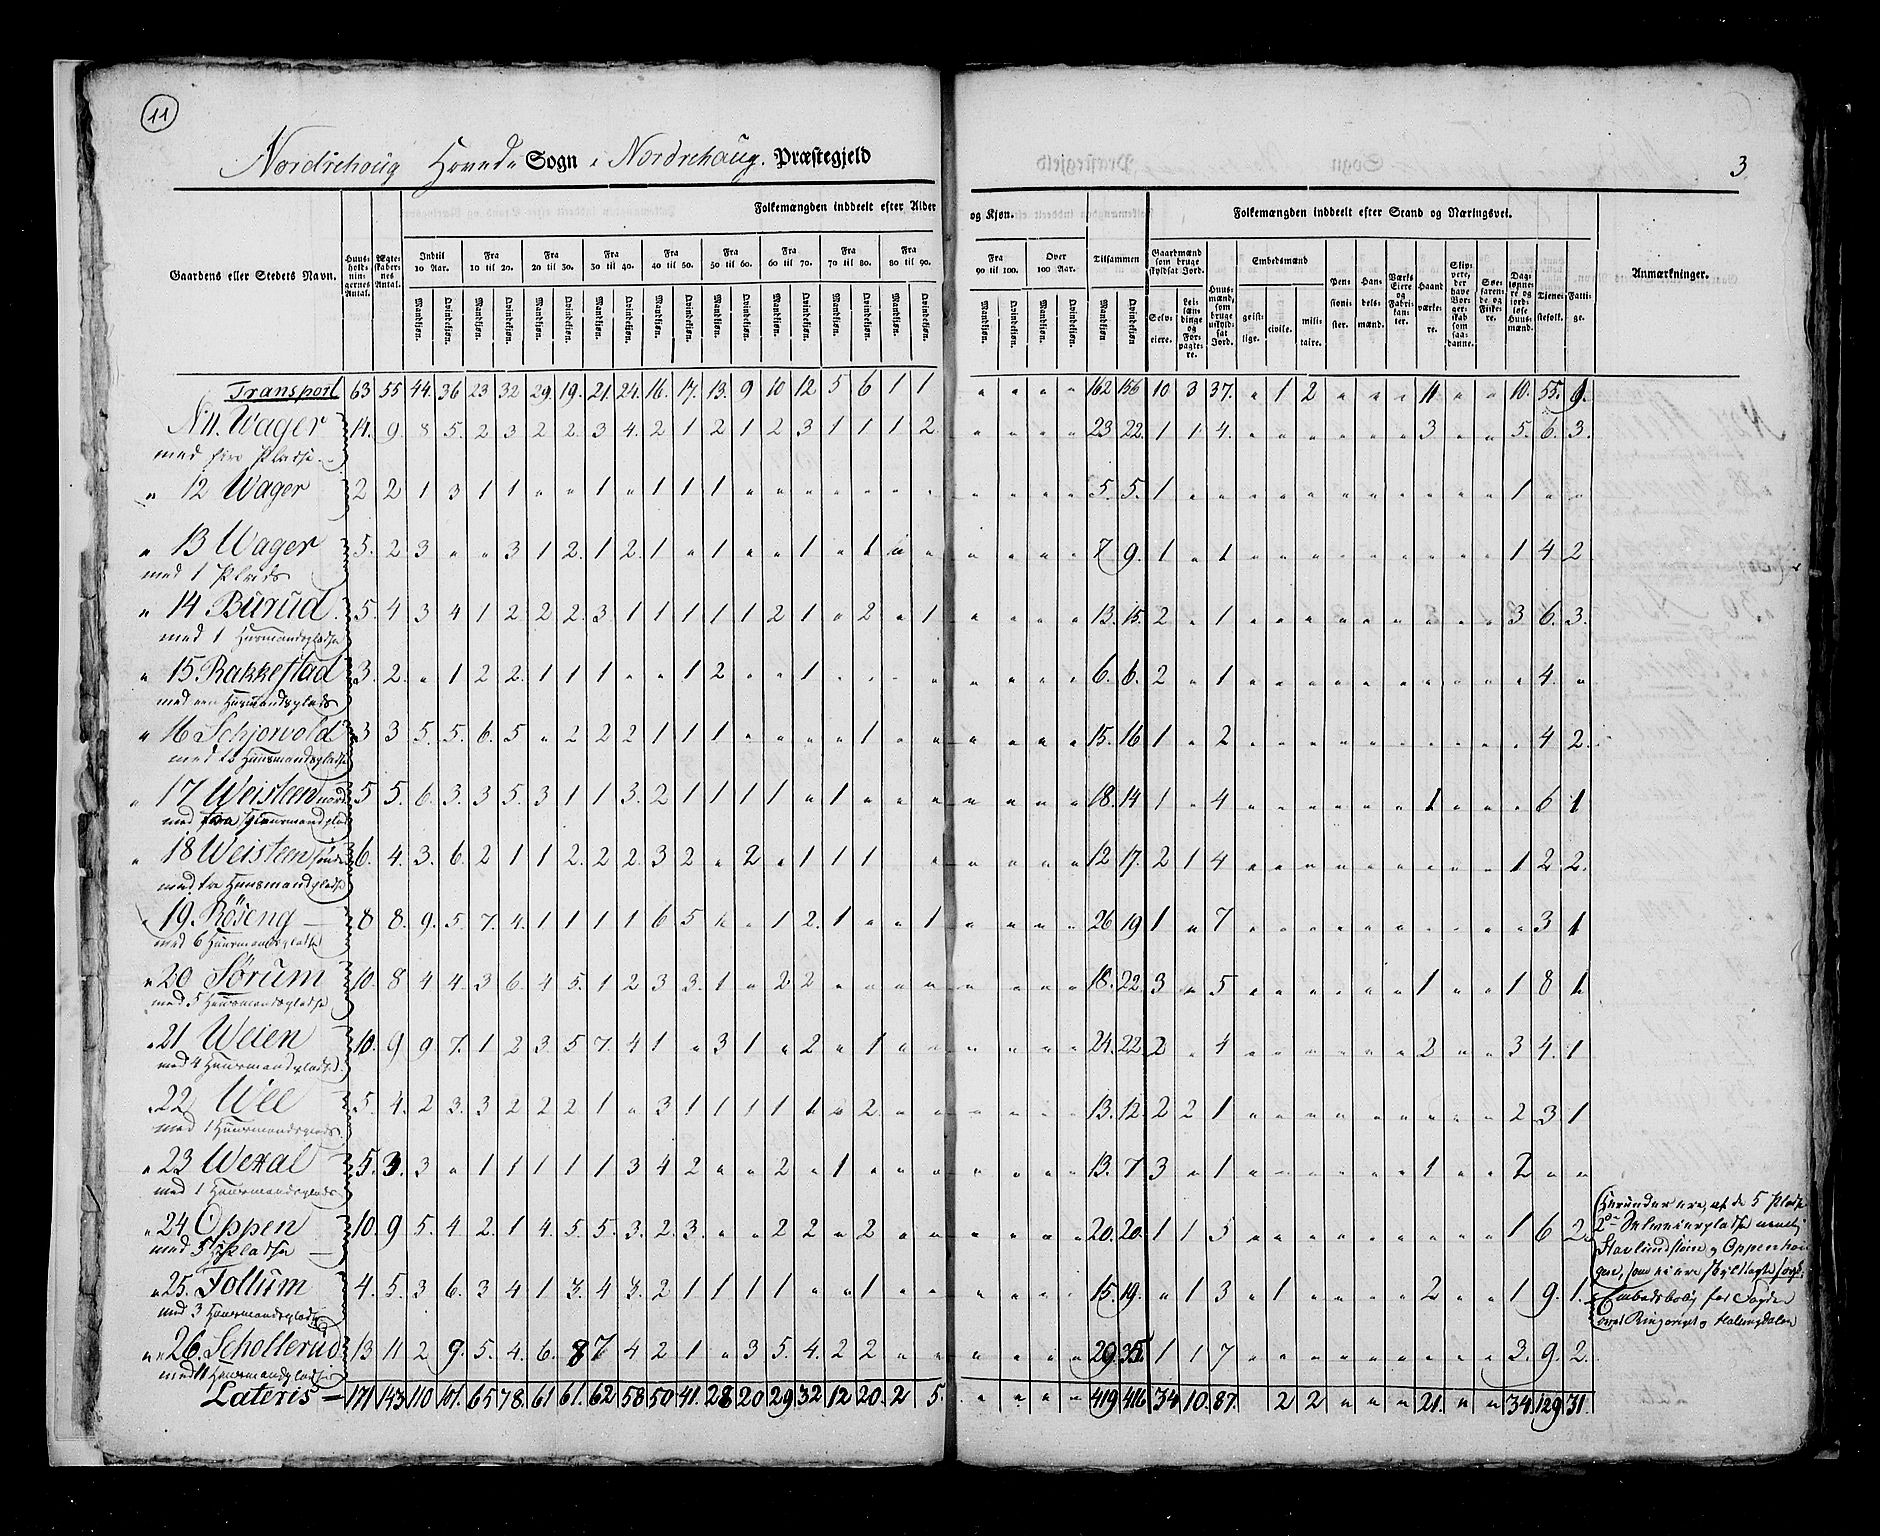 11
Nordrehoug Hoved- Sogn i Nordrehaug. Præstegjeld
3
Folkemængden inddeelt efter Alder og Kjøn.
Folkemængden inddeelt efter Stand og Næringsvei.
Gaardens eller Stedets Navn.
Huus-holdnin-gernes Antal.
Ægte-skaber-nes Antal.
Indtil 10 Aar.
Fra 10 til 20.
Fra 20 til 30.
Fra 30 til 40.
Fra 40 til 50.
Fra 50 til 60.
Fra 60 til 70.
Fra 70 til 80.
Fra 80 til 90.
Fra 90 til 100.
Over 100 Aar.
Tilsammen
Mandkjøn. Qvindekjøn.
Gaardmænd som bruge skyldsat Jord.
Selv-eiere.
Lei-lændinge og For-pagte-re.
Huus-mænd, som bruge uskyld-sat Jord.
Embedsmænd
geist-lige. civile. mili-taire.
Pen-sioni-ster.
Han-dels-mænd.
Værks Eiere og Fabri-kanter.
Haand værke-re.
Skip-pere, der have Bor-gerskab som saa-danne.
Søe-faren-de og Fiske-re.
Dag-lønne-re og jord-løse Huus-mænd.
Tjene-stefolk.
Fatti-ge.
Anmærkninger.
Transport 63 55 44 36 23 32 29 19 21 24 16 17 13 9 10 12 5 6 1 1 " " " " 162 156 10 3 37 " 1 2 " " " 11 " " 10 55 9
N 11. Wager 14 9 8 5 2 3 2 2 3 4 2 1 2 1 2 3 1 1 1 2 " " " " 23 22 1 1 4 " " " " " " 3 " " 5 6 3
med fire Pladse
" 12 Wager 2 2 1 3 1 1 " " 1 " 1 1 1 " " " " " " " " " " " 5 5 1 " " " " " " " " " " " 1 " "
" 13 Wager 5 2 3 " " 3 1 2 1 2 1 " 1 " " 1 " 1 " " " " " " 7 9 1 " 1 " " " " " " " " " 1 4 2
med 1 Plads
" 14 Burud 5 4 3 4 1 2 2 2 3 1 1 1 1 1 2 1 " 2 " 1 " " " " 13 15 2 " 1 " " " " " " " " " 3 6 3
med 1 Huusmandsplads
" 15 Rakkestad 3 2 " 1 2 2 1 1 1 " " 1 2 " " 1 " " " " " " " " 6 6 2 " 1 " " " " " " " " " " 4 "
med een Huusmandsplads
" 16 Schjorvold 3 3 5 5 6 5 " 2 2 2 1 1 1 " " " " 1 " " " " " " 15 16 1 " 2 " " " " " " " " " " 4 2
Huusmandspladse
" 17 Weisteen nord 5 5 6 3 3 5 3 1 1 3 2 1 1 1 1 " 1 " " " " " " " 18 14 1 " 4 " " " " " " 1 " " " 6 1
" 18 Weisteen 6 4 3 6 2 1 1 2 2 2 3 2 " 2 " 1 1 1 " " " " " " 12 17 2 1 4 " " " " " " " " " 1 2 2
med tre Huusmandspladse
" 19. Røseng 8 8 9 5 7 4 1 1 1 1 6 5 " " 1 2 1 " " 1 " " " " 26 19 1 " 7 " " " " " " " " " " 3 1
med 6 Huusmandspladse
" 20 Sørum 10 8 4 4 3 6 4 5 1 2 3 3 1 " 2 2 " " " " " " " " 18 22 3 " 5 " " " " " " 1 " " 1 8 1
med 5 Huusmandspladse
" 21 Weien 10 9 9 7 1 2 3 5 7 4 1 " 3 1 " 2 " 1 " " " " " " 24 22 2 " 4 " " " " " " 2 " " 3 4 1
med 4 Huusmandspladse
" 22 Wee 5 4 2 3 3 2 2 2 1 " 3 1 1 1 1 1 " 2 " " " " " " 13 12 2 2 1 " " " " " " " " " 2 3 1
med 1 Huusmandsplads
" 23 Wexal 5 3 3 " 1 1 1 1 1 3 4 2 " " 2 " 1 " " " " " " " 13 7 3 " 1 " " " " " " 1 " " 2 " "
med 1 Huusmandsplads
" 24 Oppen 10 9 5 4 2 1 4 5 5 3 2 3 " " 2 2 " 2 " " " " " " 20 20 1 1 5 " " " " " " " " " 1 6 2
med 5 Pladse
Herunder ere, af de 5 Pladse
2de Selveierpladse nemlig
Stavlundstøen og Oppenhou
gen, som ei ere skyldlagte
" 25. Follum 4 5 3 6 3 4 1 3 4 3 2 1 1 1 1 " " 1 " " " " " " 15 19 " 1 3 " 1 " " " " 2 " " 1 9 1
med 3 Huusmandspladse
Embedsbolig for Fogden
over Ringeriget og Hallingdalen
" 26. Schollerud 13 11 2 9 5 4 6 8 7 4 2 1 " 3 5 4 2 2 " " " " " " 29 35 1 1 7 " " " " " " " " " 3 9 2
med 11 Huusmandspladse
Lateris 171 143 110 101 65 78 61 61 62 58 50 41 28 20 29 32 12 20 2 5 " " " " 419 416 34 10 87 2 2 " " " 21 " " 34 129 31